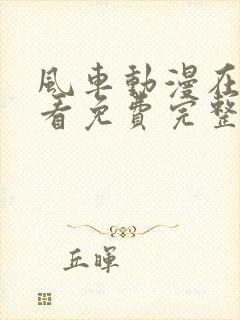 風車動漫在
看免費完整
丘暉